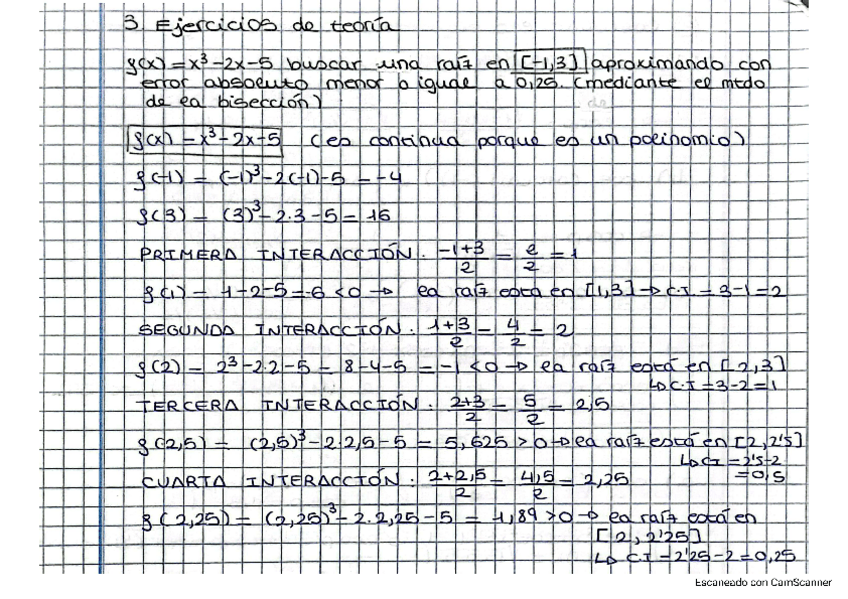 3. Ejercicios de teoría
f(x) = x³-2x-5 buscar una raíz en [-1,3] aproximando con
error absoluto menor o igual a 0,25. (mediante el mtdo
de la bisección)
f(x) = x³-2x-5 (es continua porque es un polinomio)
f(-1) = (-1)³-2(-1)-5 = -4
f(3) = (3)³-2·3-5 = 16
PRIMERA INTERACCIÓN. (-1+3)/2 = 2/2 = 1
f(1) = 1-2-5 = -6 <0 → la raíz está en [1,3] → C.I = 3-1=2
SEGUNDA INTERACCIÓN. (1+3)/2 = 4/2 = 2
f(2) = 2³-2·2-5 = 8-4-5 = -1 <0 → la raíz está en [2,3]
↳ C.I = 3-2=1
TERCERA INTERACCIÓN. (2+3)/2 = 5/2 = 2,5
f(2,5) = (2,5)³-2·2,5-5 = 5,625 >0 → la raíz está en [2, 2'5]
↳ CI = 2'5-2
=0,5
CUARTA INTERACCIÓN. (2+2,5)/2 = 4,5/2 = 2,25
f(2,25) = (2,25)³-2·2,25-5 = 1,89 >0 → la raíz está en
[2, 2'25]
↳ C.I = 2'25-2=0,25
Escaneado con CamScanner